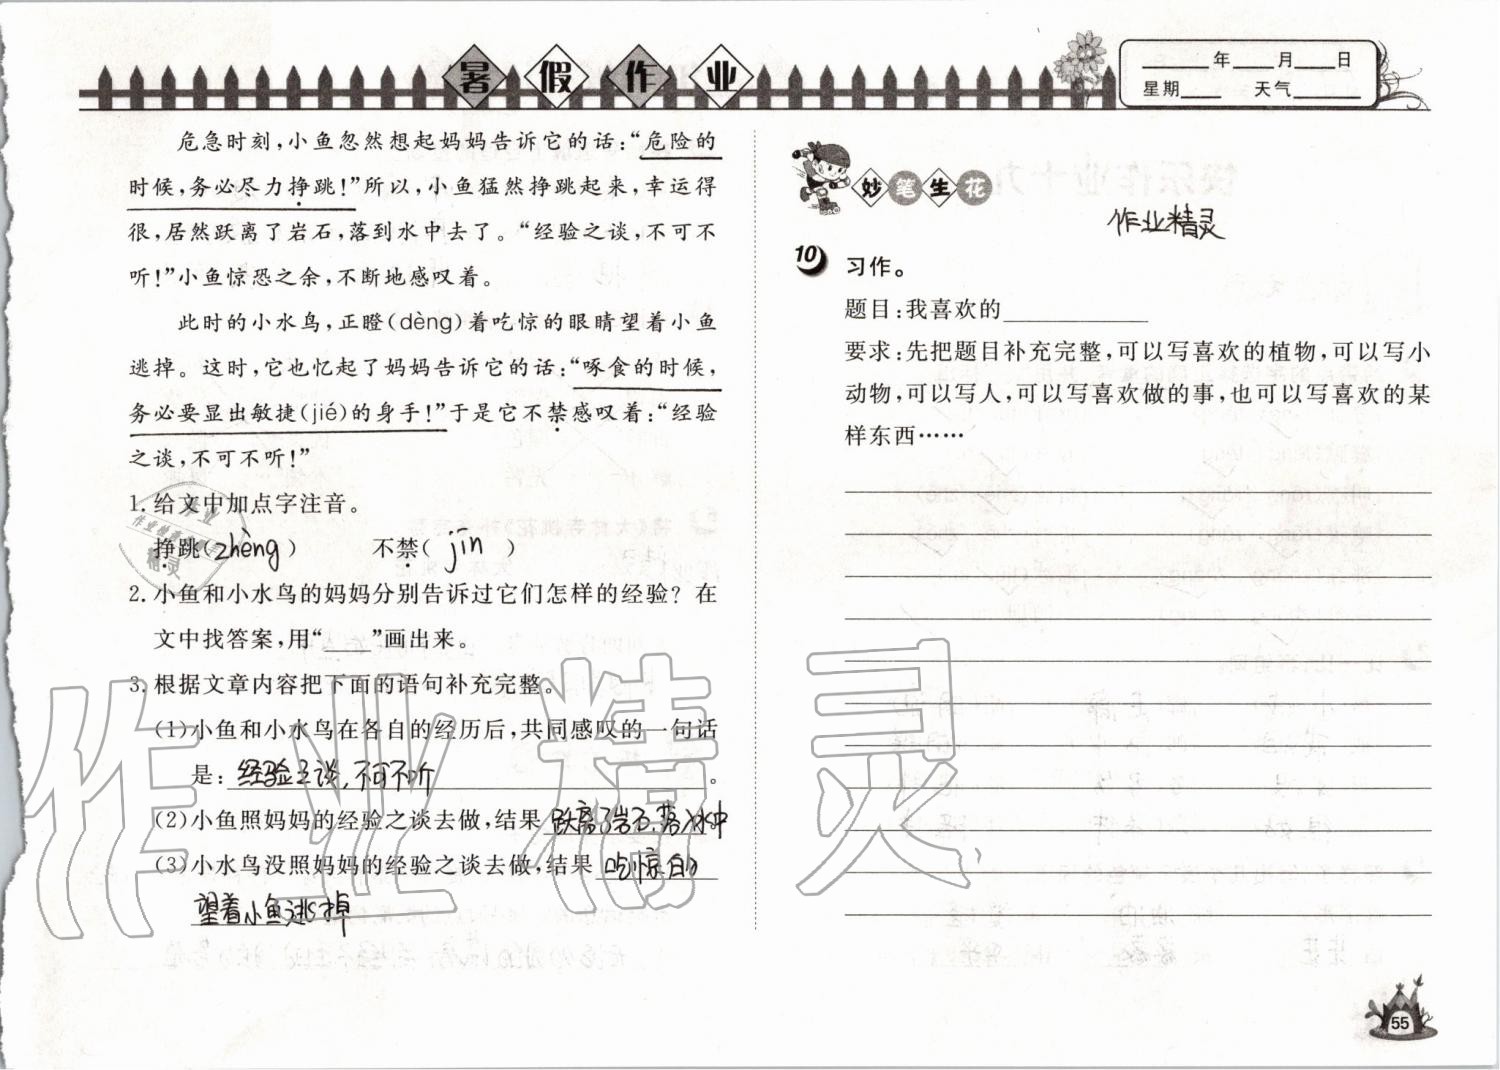 暑假作业
____年____月____日
星期____ 天气______
危急时刻,小鱼忽然想起妈妈告诉它的话:“危险的
时候,务必尽力挣跳!”所以,小鱼猛然挣跳起来,幸运得
很,居然跃离了岩石,落到水中去了。“经验之谈,不可不
听!”小鱼惊恐之余,不断地感叹着。
此时的小水鸟,正瞪(dèng)着吃惊的眼睛望着小鱼
逃掉。这时,它也忆起了妈妈告诉它的话:“啄食的时候,
务必要显出敏捷(jié)的身手!”于是它不禁感叹着:“经验
之谈,不可不听!”
1. 给文中加点字注音。
挣跳(zhèng) 不禁(jīn)
2. 小鱼和小水鸟的妈妈分别告诉过它们怎样的经验? 在
文中找答案,用“____”画出来。
3. 根据文章内容把下面的语句补充完整。
(1)小鱼和小水鸟在各自的经历后,共同感叹的一句话
是:经验之谈,不可不听。
(2)小鱼照妈妈的经验之谈去做,结果跃离了岩石,落入水中
(3)小水鸟没照妈妈的经验之谈去做,结果吃惊的
望着小鱼逃掉
妙笔生花
作业精灵
10 习作。
题目:我喜欢的____________
要求:先把题目补充完整,可以写喜欢的植物,可以写小
动物,可以写人,可以写喜欢做的事,也可以写喜欢的某
样东西……
作业精灵
55